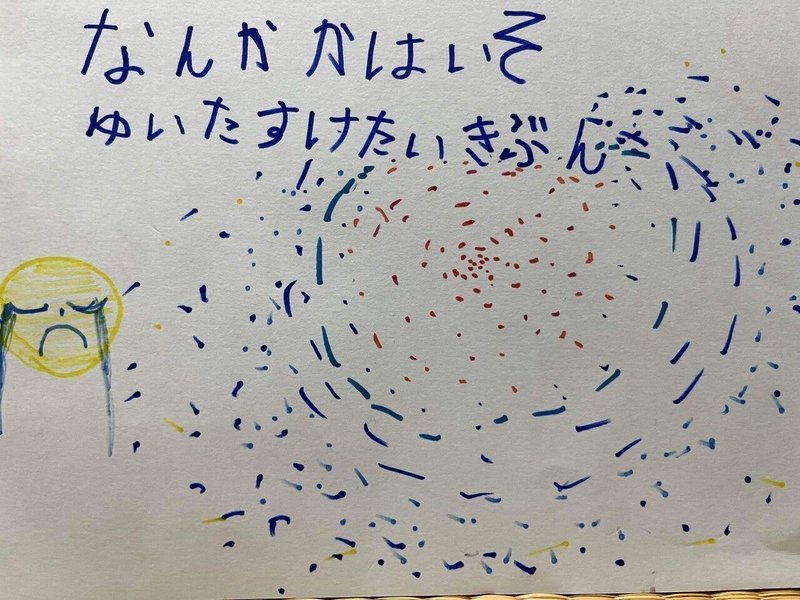 なんかかはいそ
ゆいたすけたいきぶん